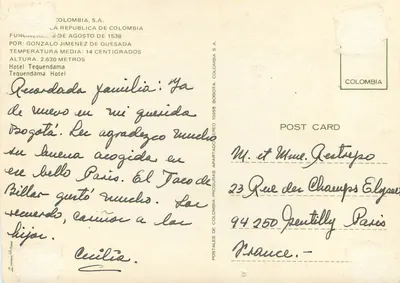 COLOMBIA, S.A.
LA REPUBLICA DE COLOMBIA
AGOSTO DE 1538
POR: GONZALO JIMENEZ DE QUESADA
TEMPERATURA MEDIA: 14 CENTIGRADOS
ALTURA: 2.630 METROS
Hotel Tequendama
Tequendama Hotel
Recordada familia: Ya
de nuevo en mi querida
Bogotá. Les agradezco mucho
su buena acogida en
ese bello Paris. El Taco de
Billar gustó mucho. Los
recuerdo, cariños a los
hijos.
Cecilia.
POSTALES DE COLOMBIA
BOGOTA, COLOMBIA, S.A.
COLOMBIA
POST CARD
M. et Mme. Restrepo
23 Rue des Champs Elysees
94250 Gentilly Paris
France.-